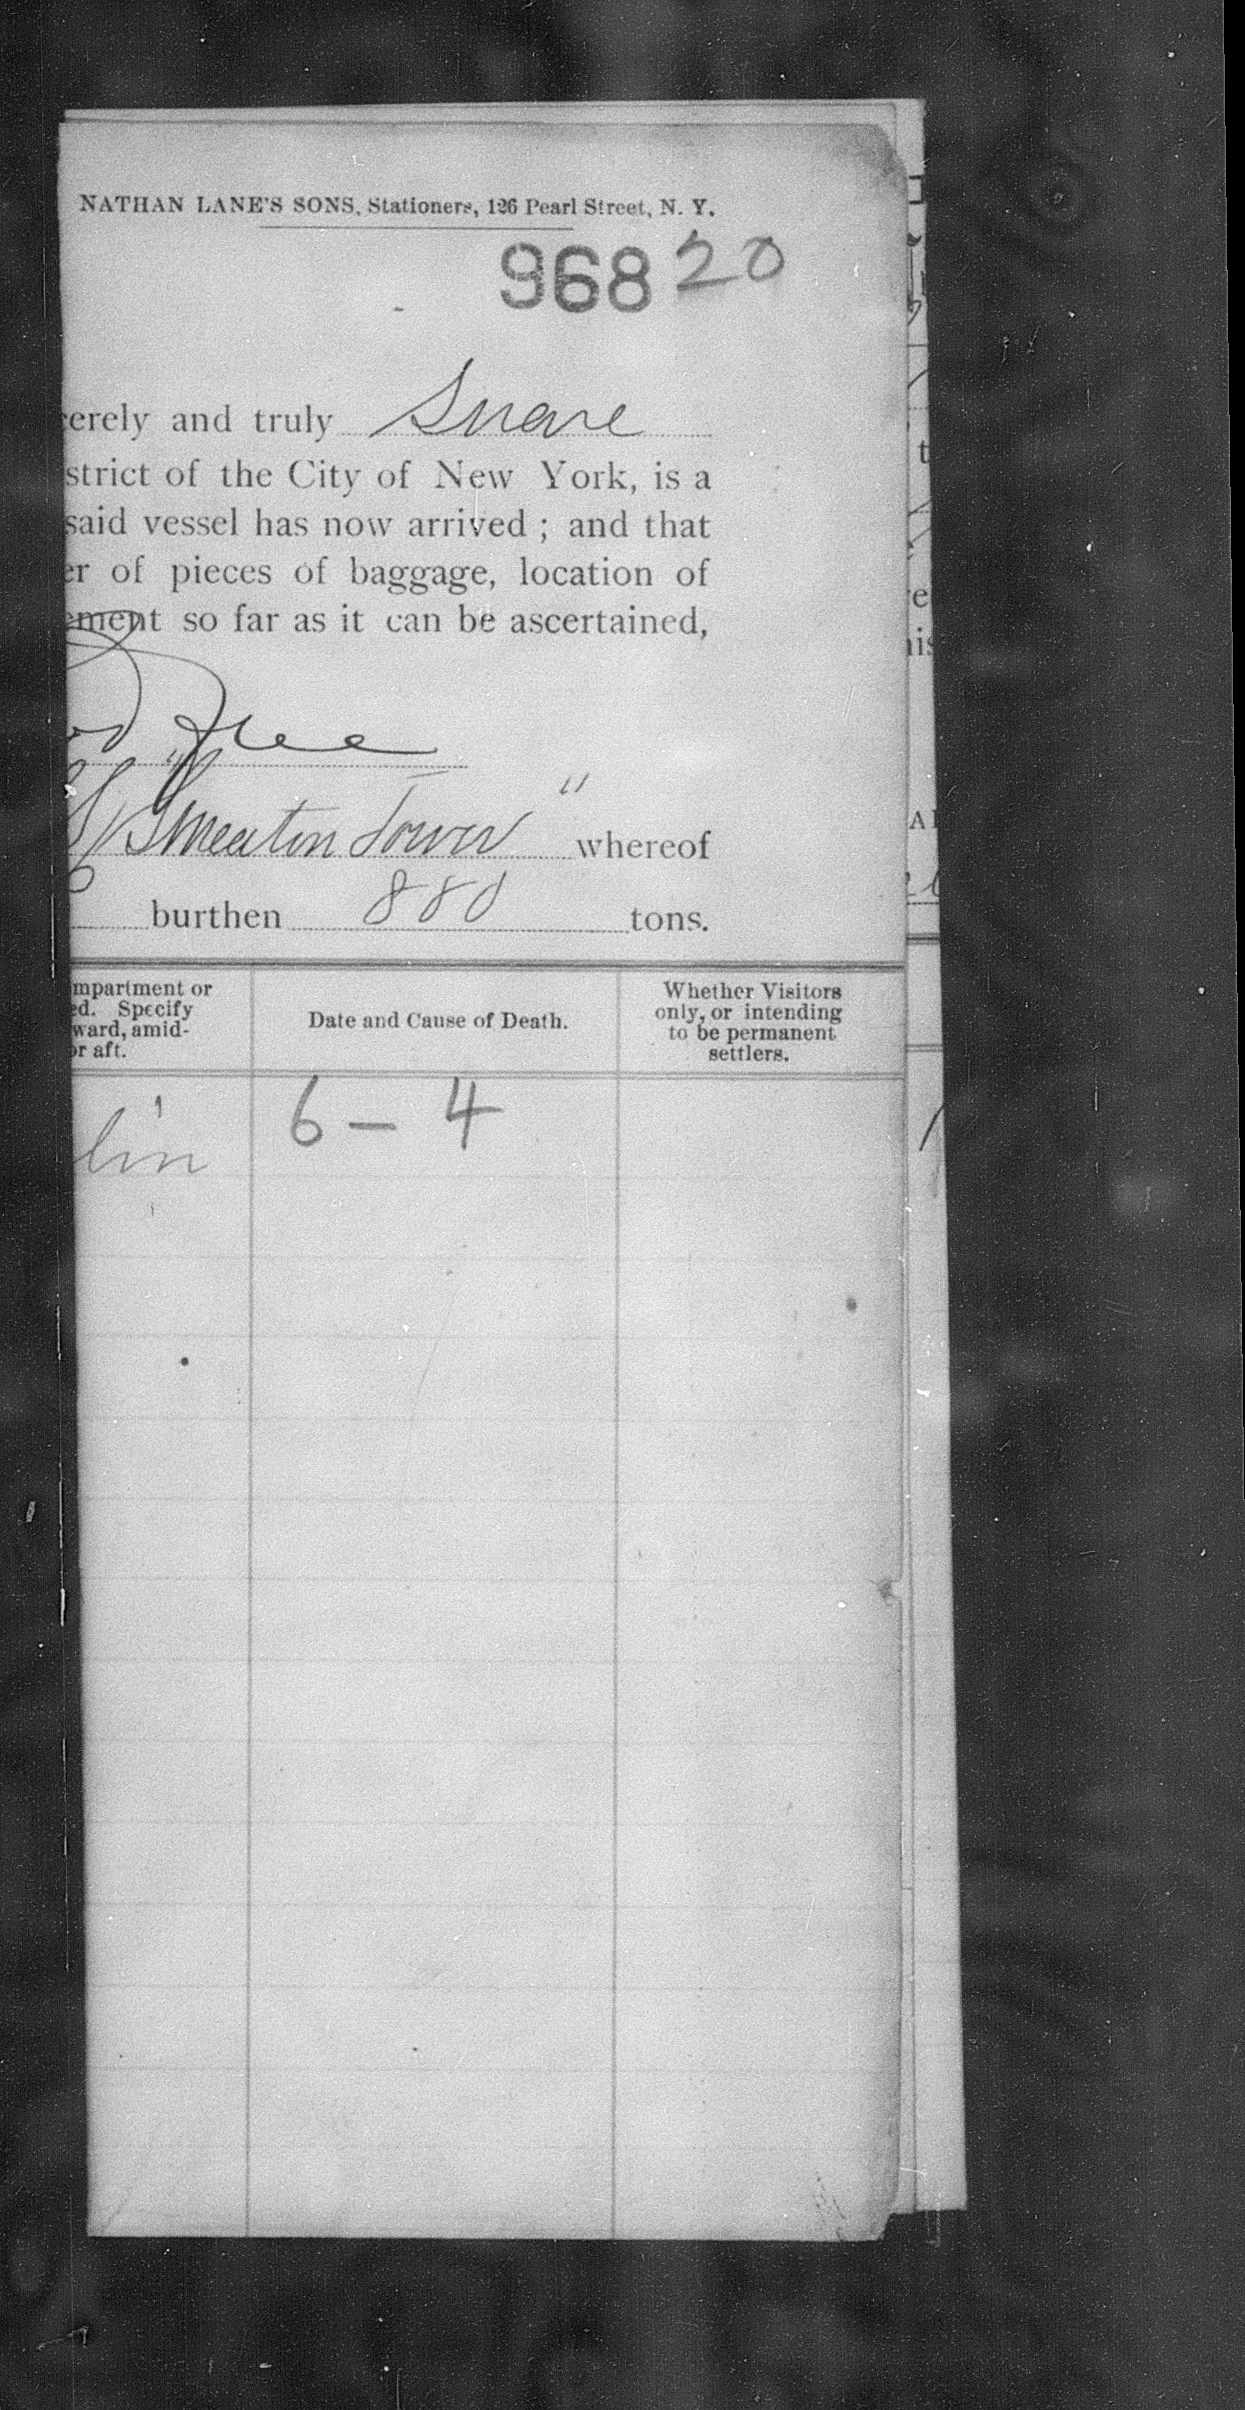 NATHAN LANE'S SONS, Stationers, 126 Pearl Street, N. Y.
968 20
erely and truly Swear
strict of the City of New York, is a
said vessel has now arrived ; and that
er of pieces of baggage, location of
ement so far as it can be ascertained,
Free
"Smeaton Tower" whereof
burthen 880 tons.
mpartment or
ed. Specify
ward, amid-
or aft.
Date and Cause of Death.
Whether Visitors
only, or intending
to be permanent
settlers.
lin 6 - 4